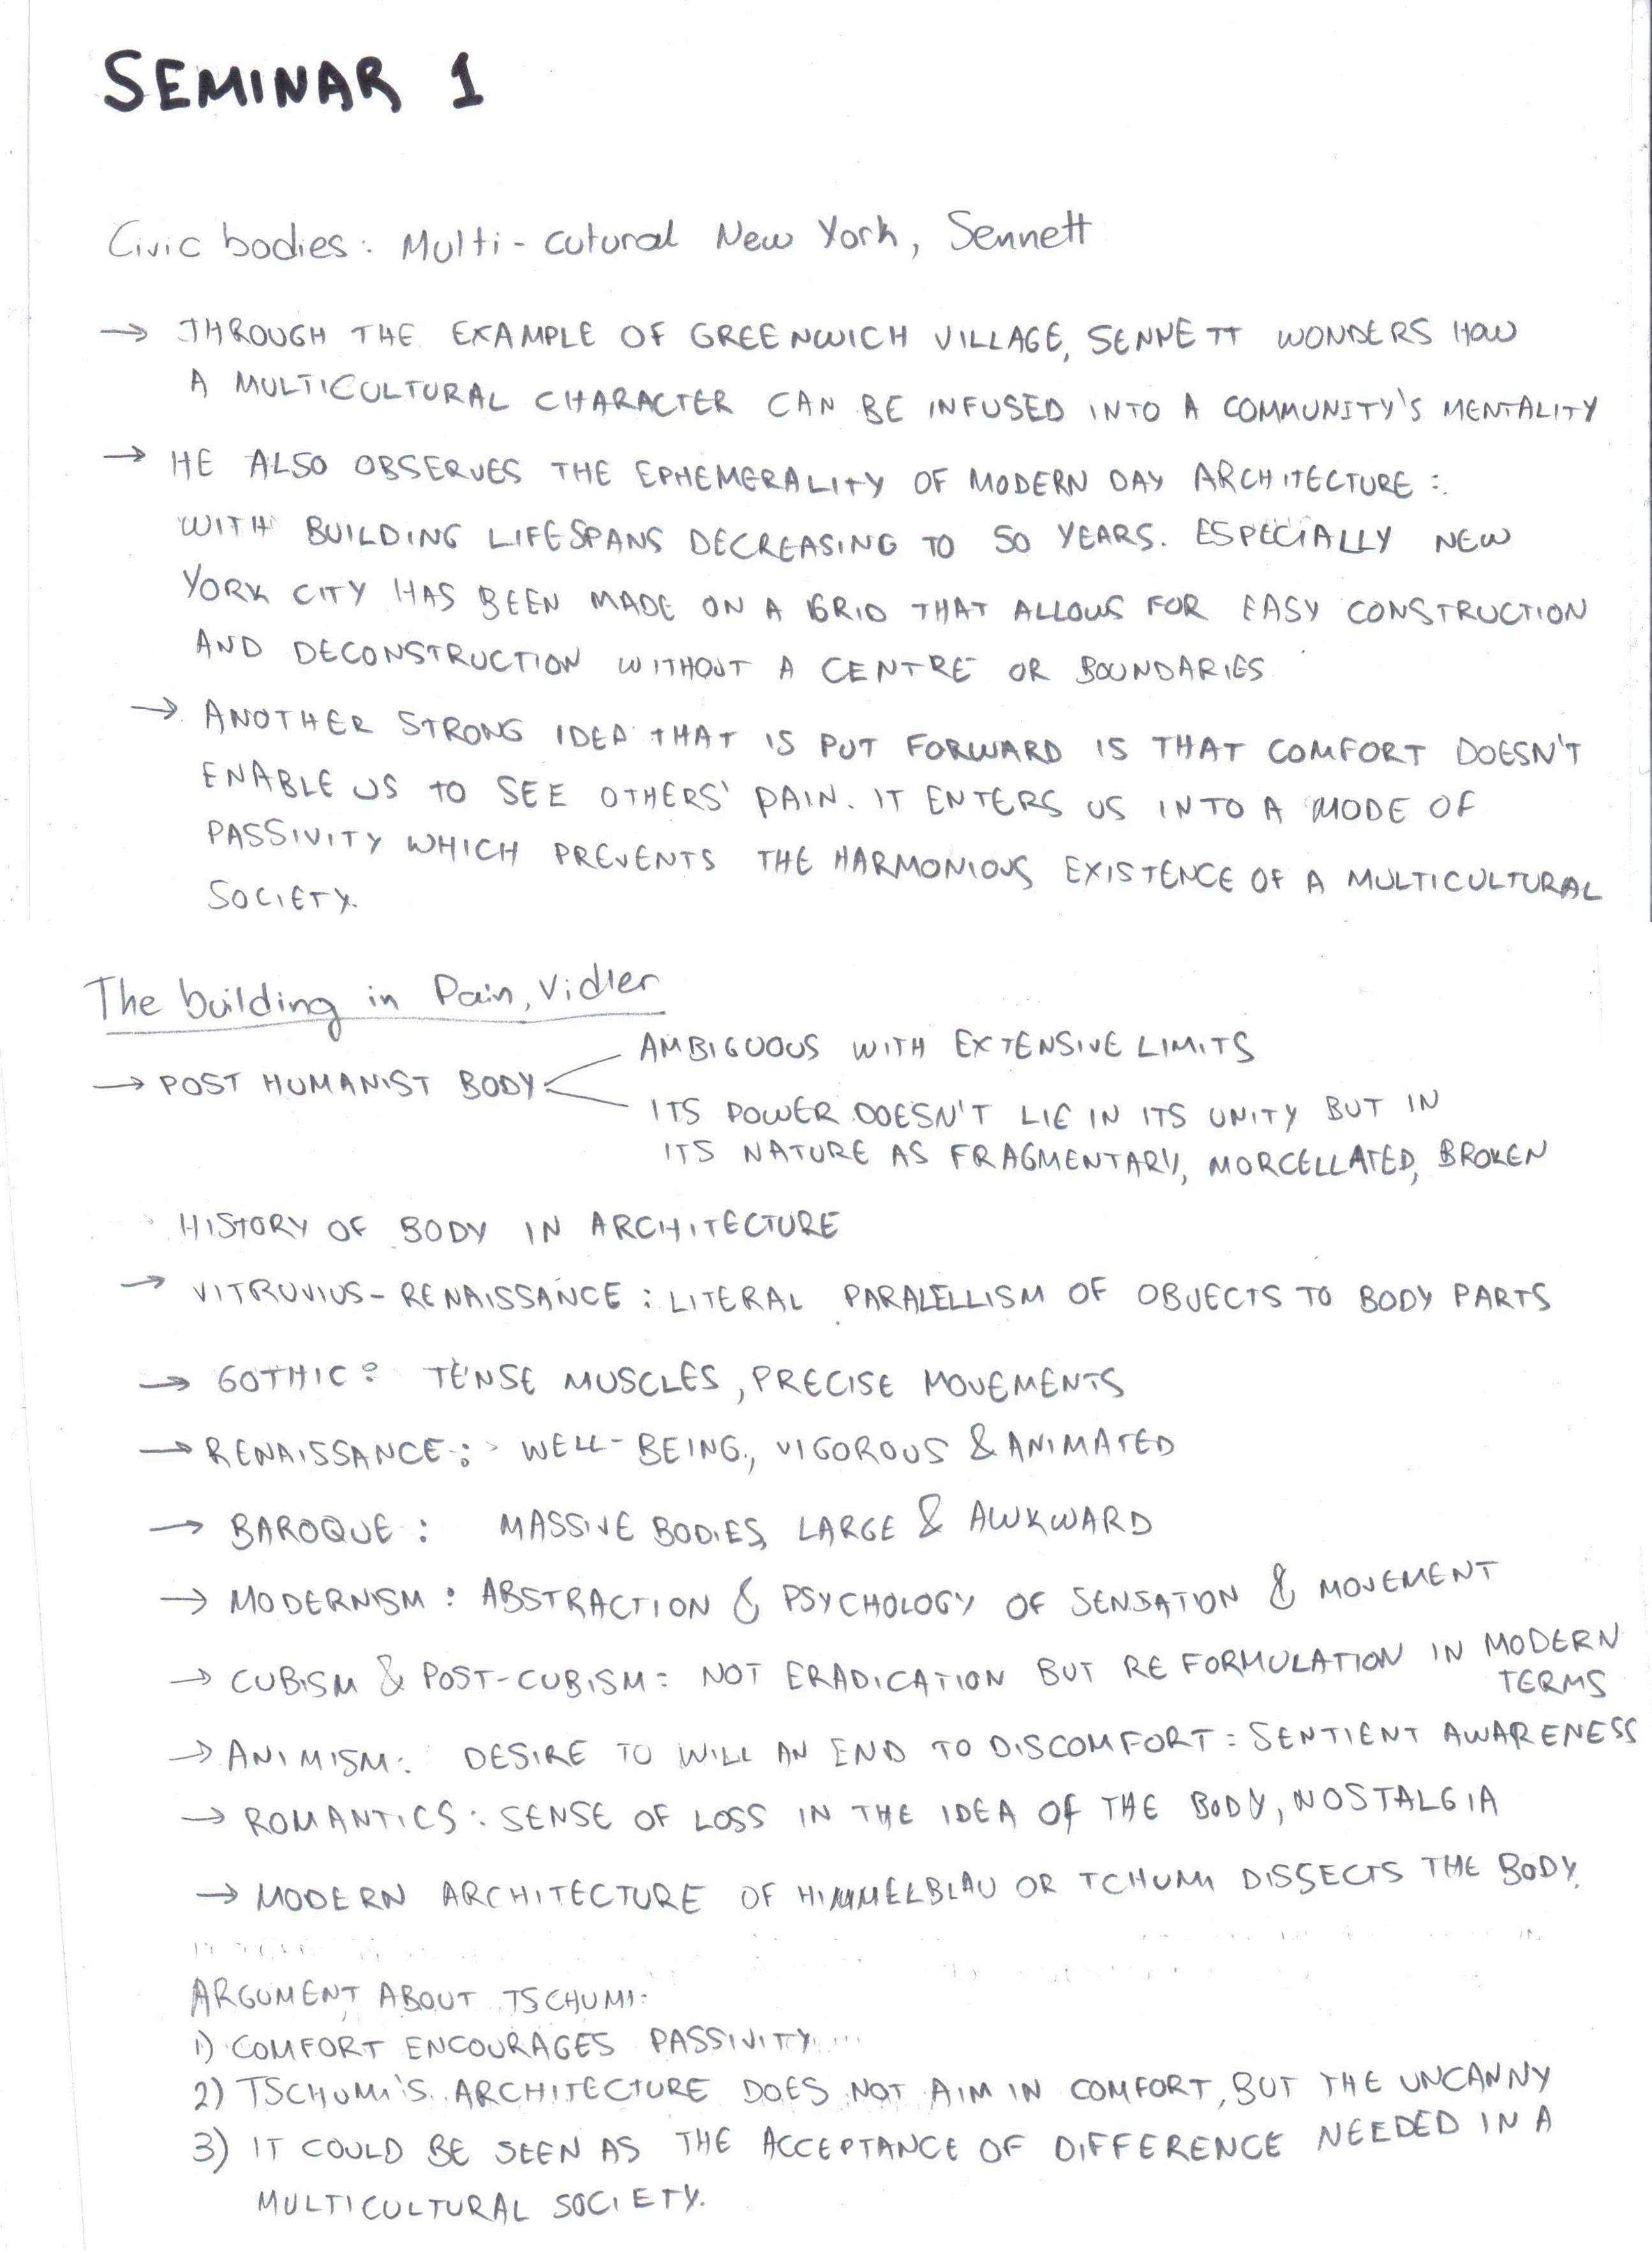 SEMINAR 1
Civic bodies: Multi-cutural New York, Sennett
→ THROUGH THE EXAMPLE OF GREENWICH VILLAGE, SENNETT WONDERS HOW
A MULTICULTURAL CHARACTER CAN BE INFUSED INTO A COMMUNITY'S MENTALITY
→ HE ALSO OBSERVES THE EPHEMERALITY OF MODERN DAY ARCHITECTURE:
WITH BUILDING LIFESPANS DECREASING TO 50 YEARS. ESPECIALLY NEW
YORK CITY HAS BEEN MADE ON A GRID THAT ALLOWS FOR EASY CONSTRUCTION
AND DECONSTRUCTION WITHOUT A CENTRE OR BOUNDARIES
→ ANOTHER STRONG IDEA THAT IS PUT FORWARD IS THAT COMFORT DOESN'T
ENABLE US TO SEE OTHERS' PAIN. IT ENTERS US INTO A MODE OF
PASSIVITY WHICH PREVENTS THE HARMONIOUS EXISTENCE OF A MULTICULTURAL
SOCIETY.
The building in Pain, Vidler
AMBIGUOUS WITH EXTENSIVE LIMITS
→ POST HUMANIST BODY
ITS POWER DOESN'T LIE IN ITS UNITY BUT IN
ITS NATURE AS FRAGMENTARY, MORCELLATED, BROKEN
HISTORY OF BODY IN ARCHITECTURE
→ VITRUVIUS - RENAISSANCE: LITERAL PARALELLISM OF OBJECTS TO BODY PARTS
→ GOTHIC: TENSE MUSCLES, PRECISE MOVEMENTS
→ RENAISSANCE: WELL-BEING, VIGOROUS & ANIMATED
→ BAROQUE: MASSIVE BODIES, LARGE & AWKWARD
→ MODERNISM: ABSTRACTION & PSYCHOLOGY OF SENSATION & MOVEMENT
→ CUBISM & POST-CUBISM: NOT ERADICATION BUT RE FORMULATION IN MODERN
TERMS
→ ANIMISM: DESIRE TO WILL AN END TO DISCOMFORT: SENTIENT AWARENESS
→ ROMANTICS: SENSE OF LOSS IN THE IDEA OF THE BODY, NOSTALGIA
→ MODERN ARCHITECTURE OF HIMMELBLAU OR TCHUMI DISSECTS THE BODY.
ARGUMENT ABOUT TSCHUMI:
1) COMFORT ENCOURAGES PASSIVITY...
2) TSCHUMI'S ARCHITECTURE DOES NOT AIM IN COMFORT, BUT THE UNCANNY
3) IT COULD BE SEEN AS THE ACCEPTANCE OF DIFFERENCE NEEDED IN A
MULTICULTURAL SOCIETY.